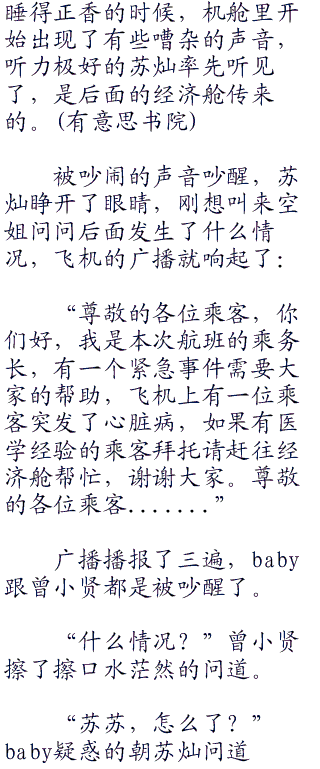 睡得正香的时候，机舱里开
始出现了有些嘈杂的声音，
听力极好的苏灿率先听见
了，是后面的经济舱传来
的。(有意思书院)
被吵闹的声音吵醒，苏
灿睁开了眼睛，刚想叫来空
姐问问后面发生了什么情
况，飞机的广播就响起了：
“尊敬的各位乘客，你
们好，我是本次航班的乘务
长，有一个紧急事件需要大
家的帮助，飞机上有一位乘
客突发了心脏病，如果有医
学经验的乘客拜托请赶往经
济舱帮忙，谢谢大家。尊敬
的各位乘客.......”
广播播报了三遍，baby
跟曾小贤都是被吵醒了。
“什么情况？”曾小贤
擦了擦口水茫然的问道。
“苏苏，怎么了？”
baby疑惑的朝苏灿问道